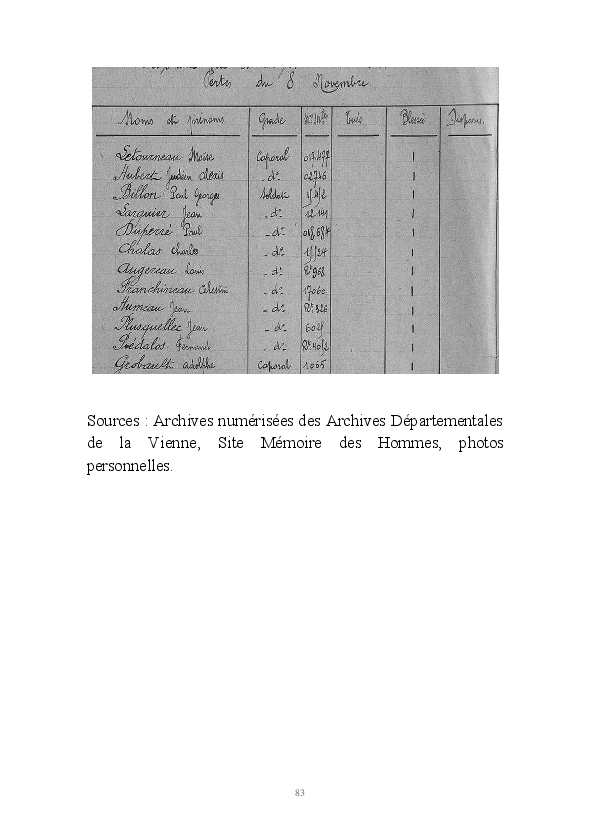 Pertes du 8 Novembre
Noms et prénoms Grade Nº Mle Tués Blessés Disparus
Letourneau Moïse Caporal 017477 1
Hubert Alexis - dº - 02746 1
Billon Paul Georges Soldat 1
Jean - dº - 12141 1
Duperré Paul - dº - 1
Chalas Charles - dº - 1
Augereau Louis - dº - 1
Franchineau Célestin - dº - 17060 1
Humeau Jean - dº - 1
Plusquellec Jean - dº - 1
Prédalos Fernand - dº - 1
Grobault Adolphe Caporal 1065 1
Sources : Archives numérisées des Archives Départementales
de la Vienne, Site Mémoire des Hommes, photos
personnelles.
83